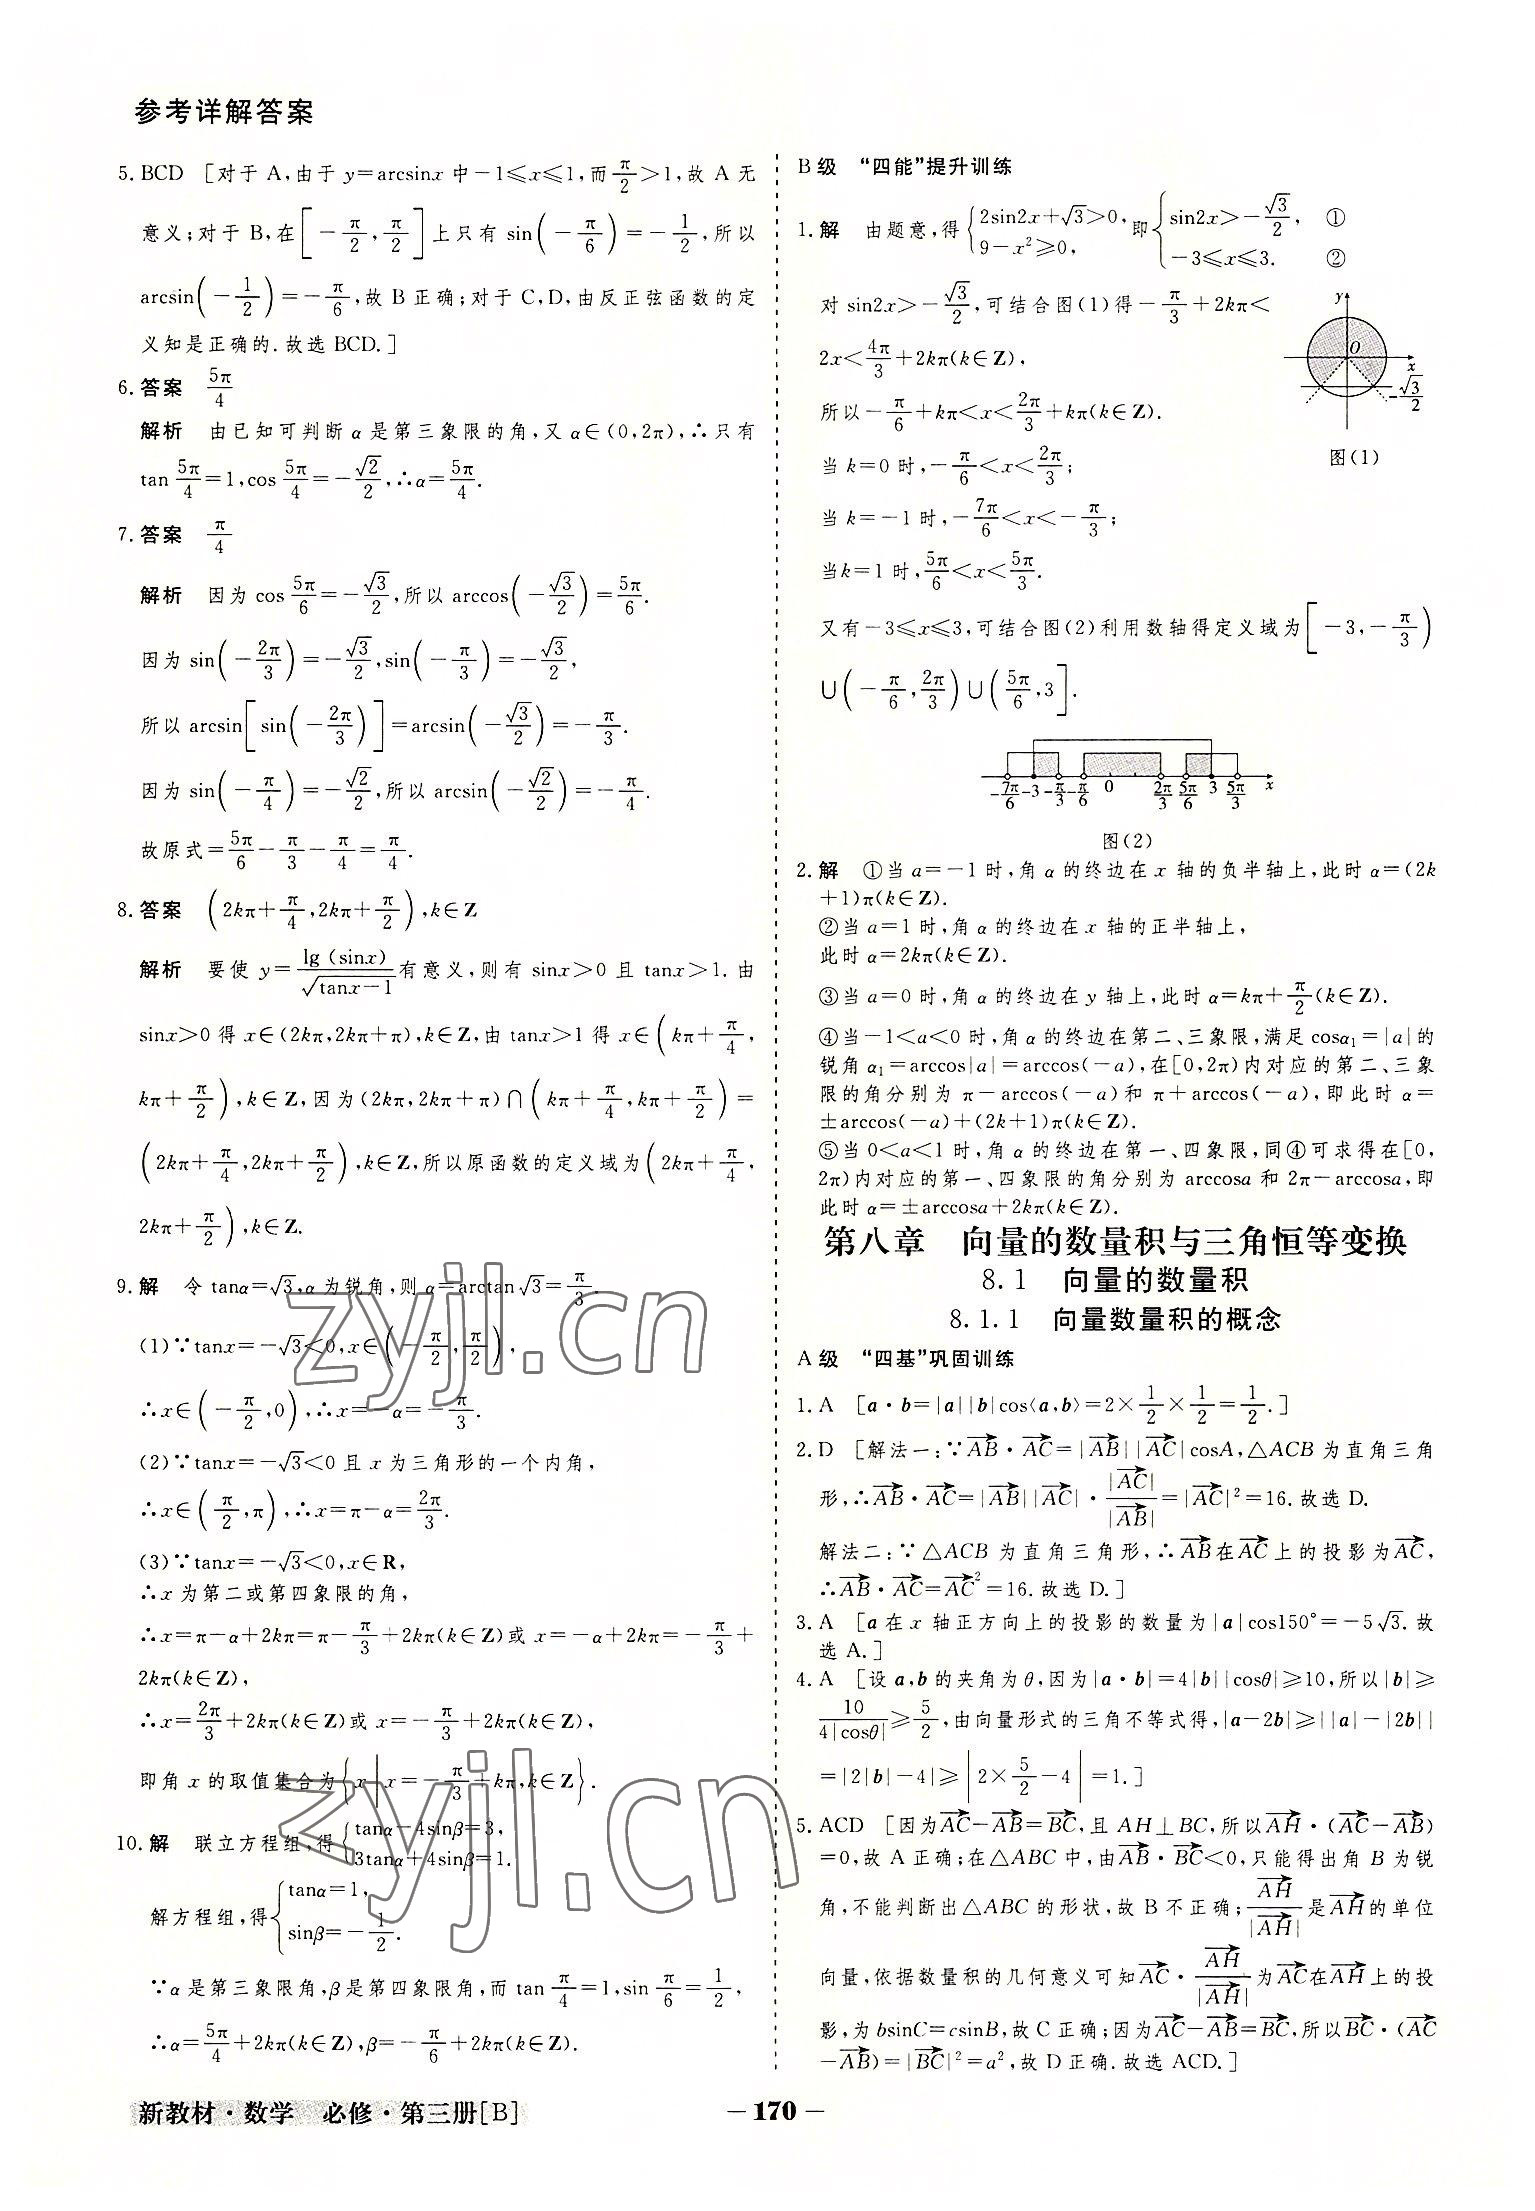 参考详解答案
5. BCD [对于 A,由于 y=arcsinx 中 -1≤x≤1,而 π/2>1,故 A 无
意义;对于 B,在[-π/2,π/2]上只有 sin(-π/6)=-1/2,所以
arcsin(-1/2)=-π/6,故 B 正确;对于 C,D,由反正弦函数的定
义知是正确的.故选 BCD.]
6. 答案 5π/4
解析 由已知可判断 α 是第三象限的角,又 α∈(0,2π),∴只有
tan 5π/4=1,cos 5π/4=-√2/2,∴α=5π/4.
7. 答案 π/4
解析 因为 cos 5π/6=-√3/2,所以 arccos(-√3/2)=5π/6.
因为 sin(-2π/3)=-√3/2,sin(-π/3)=-√3/2,
所以 arcsin[sin(-2π/3)]=arcsin(-√3/2)=-π/3.
因为 sin(-π/4)=-√2/2,所以 arcsin(-√2/2)=-π/4.
故原式=5π/6-π/3-π/4=π/4.
8. 答案 (2kπ+π/4,2kπ+π/2),k∈Z
解析 要使 y=lg(sinx)/√(tanx-1)有意义,则有 sinx>0 且 tanx>1.由
sinx>0 得 x∈(2kπ,2kπ+π),k∈Z,由 tanx>1 得 x∈(kπ+π/4,
kπ+π/2),k∈Z,因为(2kπ,2kπ+π)∩(kπ+π/4,kπ+π/2)=
(2kπ+π/4,2kπ+π/2),k∈Z,所以原函数的定义域为(2kπ+π/4,
2kπ+π/2),k∈Z.
9. 解 令 tanα=√3,α 为锐角,则 α=arctan√3=π/3.
(1)∵tanx=-√3<0,x∈(-π/2,π/2),
∴x∈(-π/2,0),∴x=-α=-π/3.
(2)∵tanx=-√3<0 且 x 为三角形的一个内角,
∴x∈(π/2,π),∴x=π-α=2π/3.
(3)∵tanx=-√3<0,x∈R,
∴x 为第二或第四象限的角,
∴x=π-α+2kπ=π-π/3+2kπ(k∈Z)或 x=-α+2kπ=-π/3+
2kπ(k∈Z),
∴x=2π/3+2kπ(k∈Z)或 x=-π/3+2kπ(k∈Z),
即角 x 的取值集合为{x|x=-π/3+kπ,k∈Z}.
10. 解 联立方程组,得{tanα-4sinβ=3,
3tanα+4sinβ=1.
解方程组,得{tanα=1,
sinβ=-1/2.
∵α 是第三象限角,β 是第四象限角,而 tan π/4=1,sin π/6=1/2,
∴α=5π/4+2kπ(k∈Z),β=-π/6+2kπ(k∈Z).
B 级 “四能”提升训练
1. 解 由题意,得{2sin2x+√3>0,
9-x²≥0,
即{sin2x>-√3/2, ①
-3≤x≤3. ②
对 sin2x>-√3/2,可结合图(1)得-π/3+2kπ<
2x<4π/3+2kπ(k∈Z),
所以-π/6+kπ<x<2π/3+kπ(k∈Z).
当 k=0 时,-π/6<x<2π/3;
当 k=-1 时,-7π/6<x<-π/3;
当k=1 时,5π/6<x<5π/3.
y
O
x
-√3/2
图(1)
又有-3≤x≤3,可结合图(2)利用数轴得定义域为[-3,-π/3)
∪(-π/6,2π/3)∪(5π/6,3].
-7π/6 -3 -π/3 -π/6 0 2π/3 5π/6 3 5π/3 x
图(2)
2. 解 ①当 a=-1 时,角 α 的终边在 x 轴的负半轴上,此时 α=(2k
+1)π(k∈Z).
②当 a=1 时,角 α 的终边在 x 轴的正半轴上,
此时 α=2kπ(k∈Z).
③当 a=0 时,角 α 的终边在 y 轴上,此时 α=kπ+π/2(k∈Z).
④当-1<a<0 时,角 α 的终边在第二、三象限,满足 cosα₁=|a|的
锐角 α₁=arccos|a|=arccos(-a),在[0,2π)内对应的第二、三象
限的角分别为 π-arccos(-a)和 π+arccos(-a),即此时 α=
±arccos(-a)+(2k+1)π(k∈Z).
⑤当 0<a<1 时,角 α 的终边在第一、四象限,同④可求得在[0,
2π)内对应的第一、四象限的角分别为 arccosa 和 2π-arccosa,即
此时 α=±arccosa+2kπ(k∈Z).
第八章 向量的数量积与三角恒等变换
8.1 向量的数量积
8.1.1 向量数量积的概念
A 级 “四基”巩固训练
1. A [a·b=|a||b|cos⟨a,b⟩=2×1/2×1/2=1/2.]
2. D [解法一:∵AB→·AC→=|AB→||AC→|cosA,△ACB 为直角三角
形,∴AB→·AC→=|AB→||AC→|·|AC→|/|AB→|=|AC→|²=16.故选 D.
解法二:∵△ACB 为直角三角形,∴AB→在AC→上的投影为AC→,
∴AB→·AC→=AC→²=16.故选 D.]
3. A [a 在 x 轴正方向上的投影的数量为|a|cos150°=-5√3.故
选 A.]
4. A [设 a,b 的夹角为 θ,因为|a·b|=4|b||cosθ|≥10,所以|b|≥
10/(4|cosθ|)≥5/2,由向量形式的三角不等式得,|a-2b|≥||a|-|2b||
=|2|b|-4|≥|2×5/2-4|=1.]
5. ACD [因为AC→-AB→=BC→,且 AH⊥BC,所以AH→·(AC→-AB→)
=0,故 A 正确;在△ABC 中,由AB→·BC→<0,只能得出角 B 为锐
角,不能判断出△ABC 的形状,故 B 不正确;AH→/|AH→|是AH→的单位
向量,依据数量积的几何意义可知AC→·AH→/|AH→|为AC→在AH→上的投
影,为 bsinC=csinB,故 C 正确;因为AC→-AB→=BC→,所以BC→·(AC→
-AB→)=|BC→|²=a²,故 D 正确.故选 ACD.]
zyjl.cn
zyjl.cn
新教材·数学 必修·第三册[B]
- 170 -